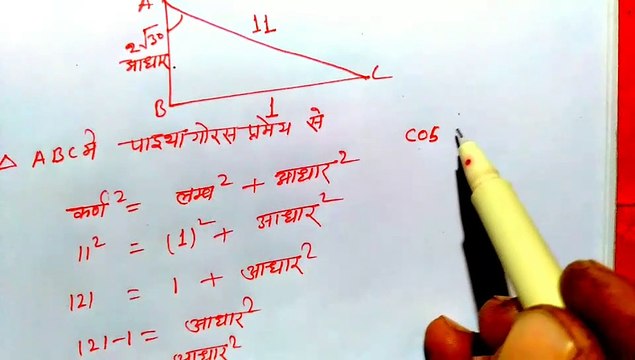 A
11
2√30
आधार
B
1
C
△ ABC मे पाइथागोरस प्रमेय से
cos
कर्ण² = लम्ब² + आधार²
11² = (1)² + आधार²
121 = 1 + आधार²
121-1 = आधार²
आधार²